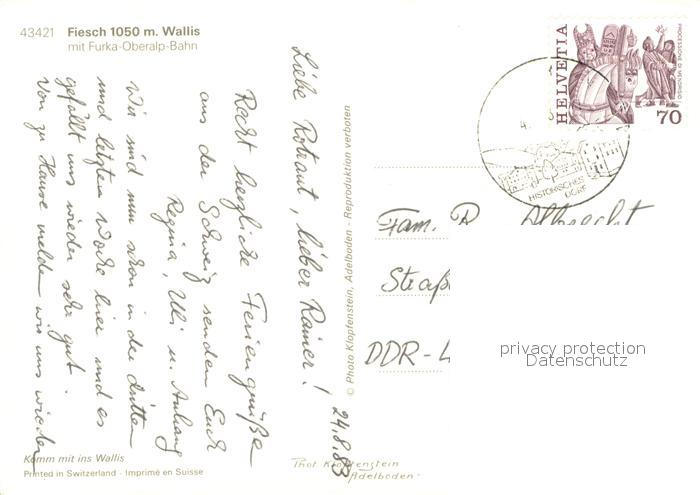 43421 Fiesch 1050 m. Wallis
mit Furka-Oberalp-Bahn
24.8.83
Liebe Rotraut, lieber Rainer!
Recht herzliche Feriengrüße
aus der Schweiz senden Euch
Regina, Ulli u. Anhang
Wir sind nun schon in der dritten
und letzten Woche hier und es
gefällt uns wieder sehr gut.
Von zu Hause melden wir uns wieder
Komm mit ins Wallis
Printed in Switzerland - Imprimé en Suisse
© Photo Klopfenstein, Adelboden - Reproduktion verboten
Phot. Klopfenstein
Adelboden
HELVETIA
PROCESSIONE DI MENDRISIO
70
HISTORISCHES
DORF
Fam. R. Albrecht
Straß
DDR - 4
privacy protection
Datenschutz